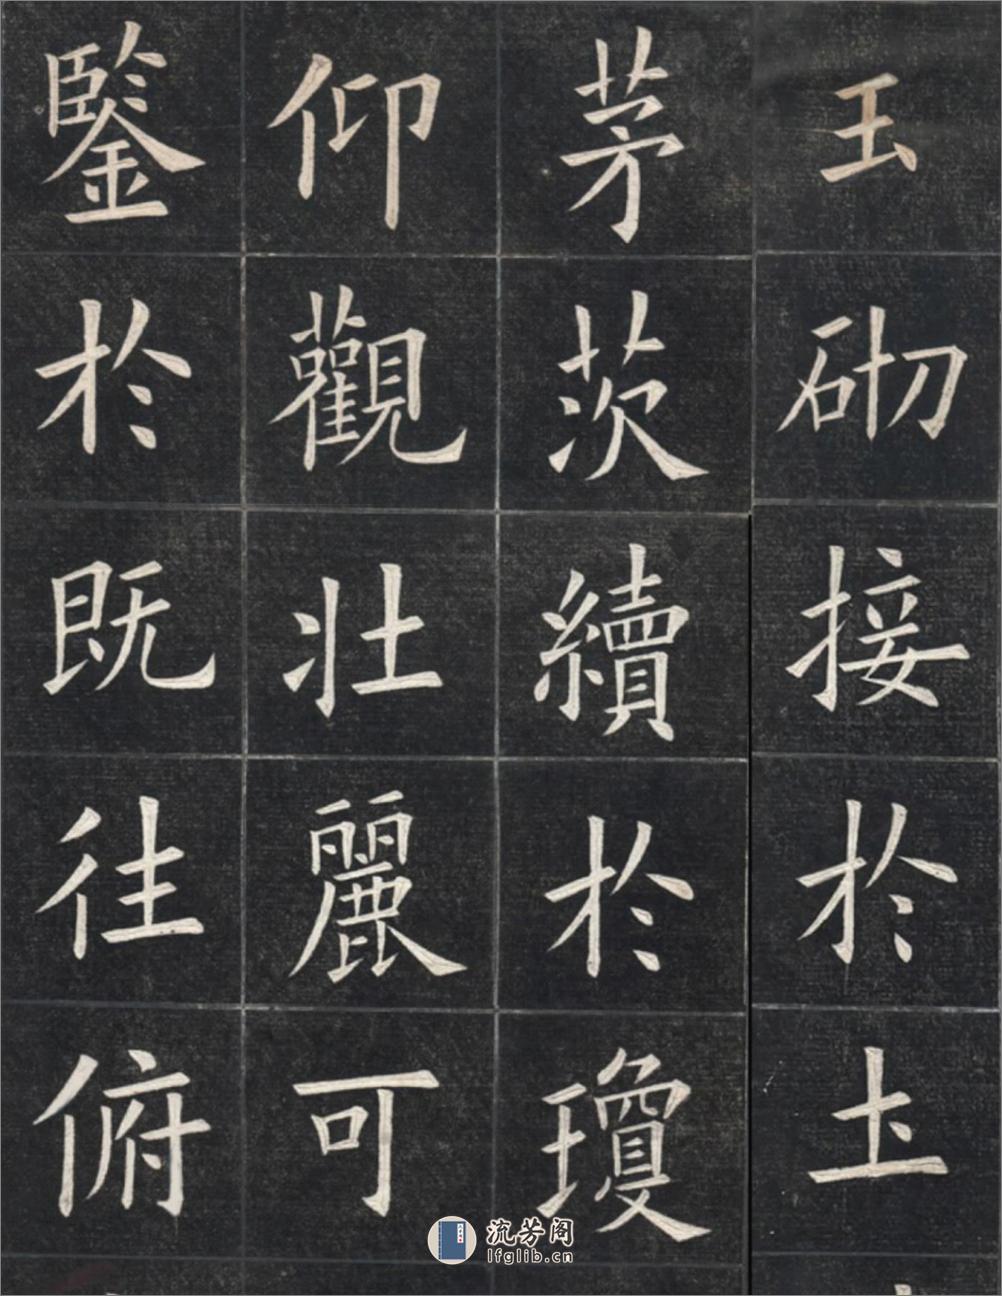 玉砌接於土
茅茨續於瓊
仰觀壯麗可
鑒於既往俯
流芳阁
lfglib.cn